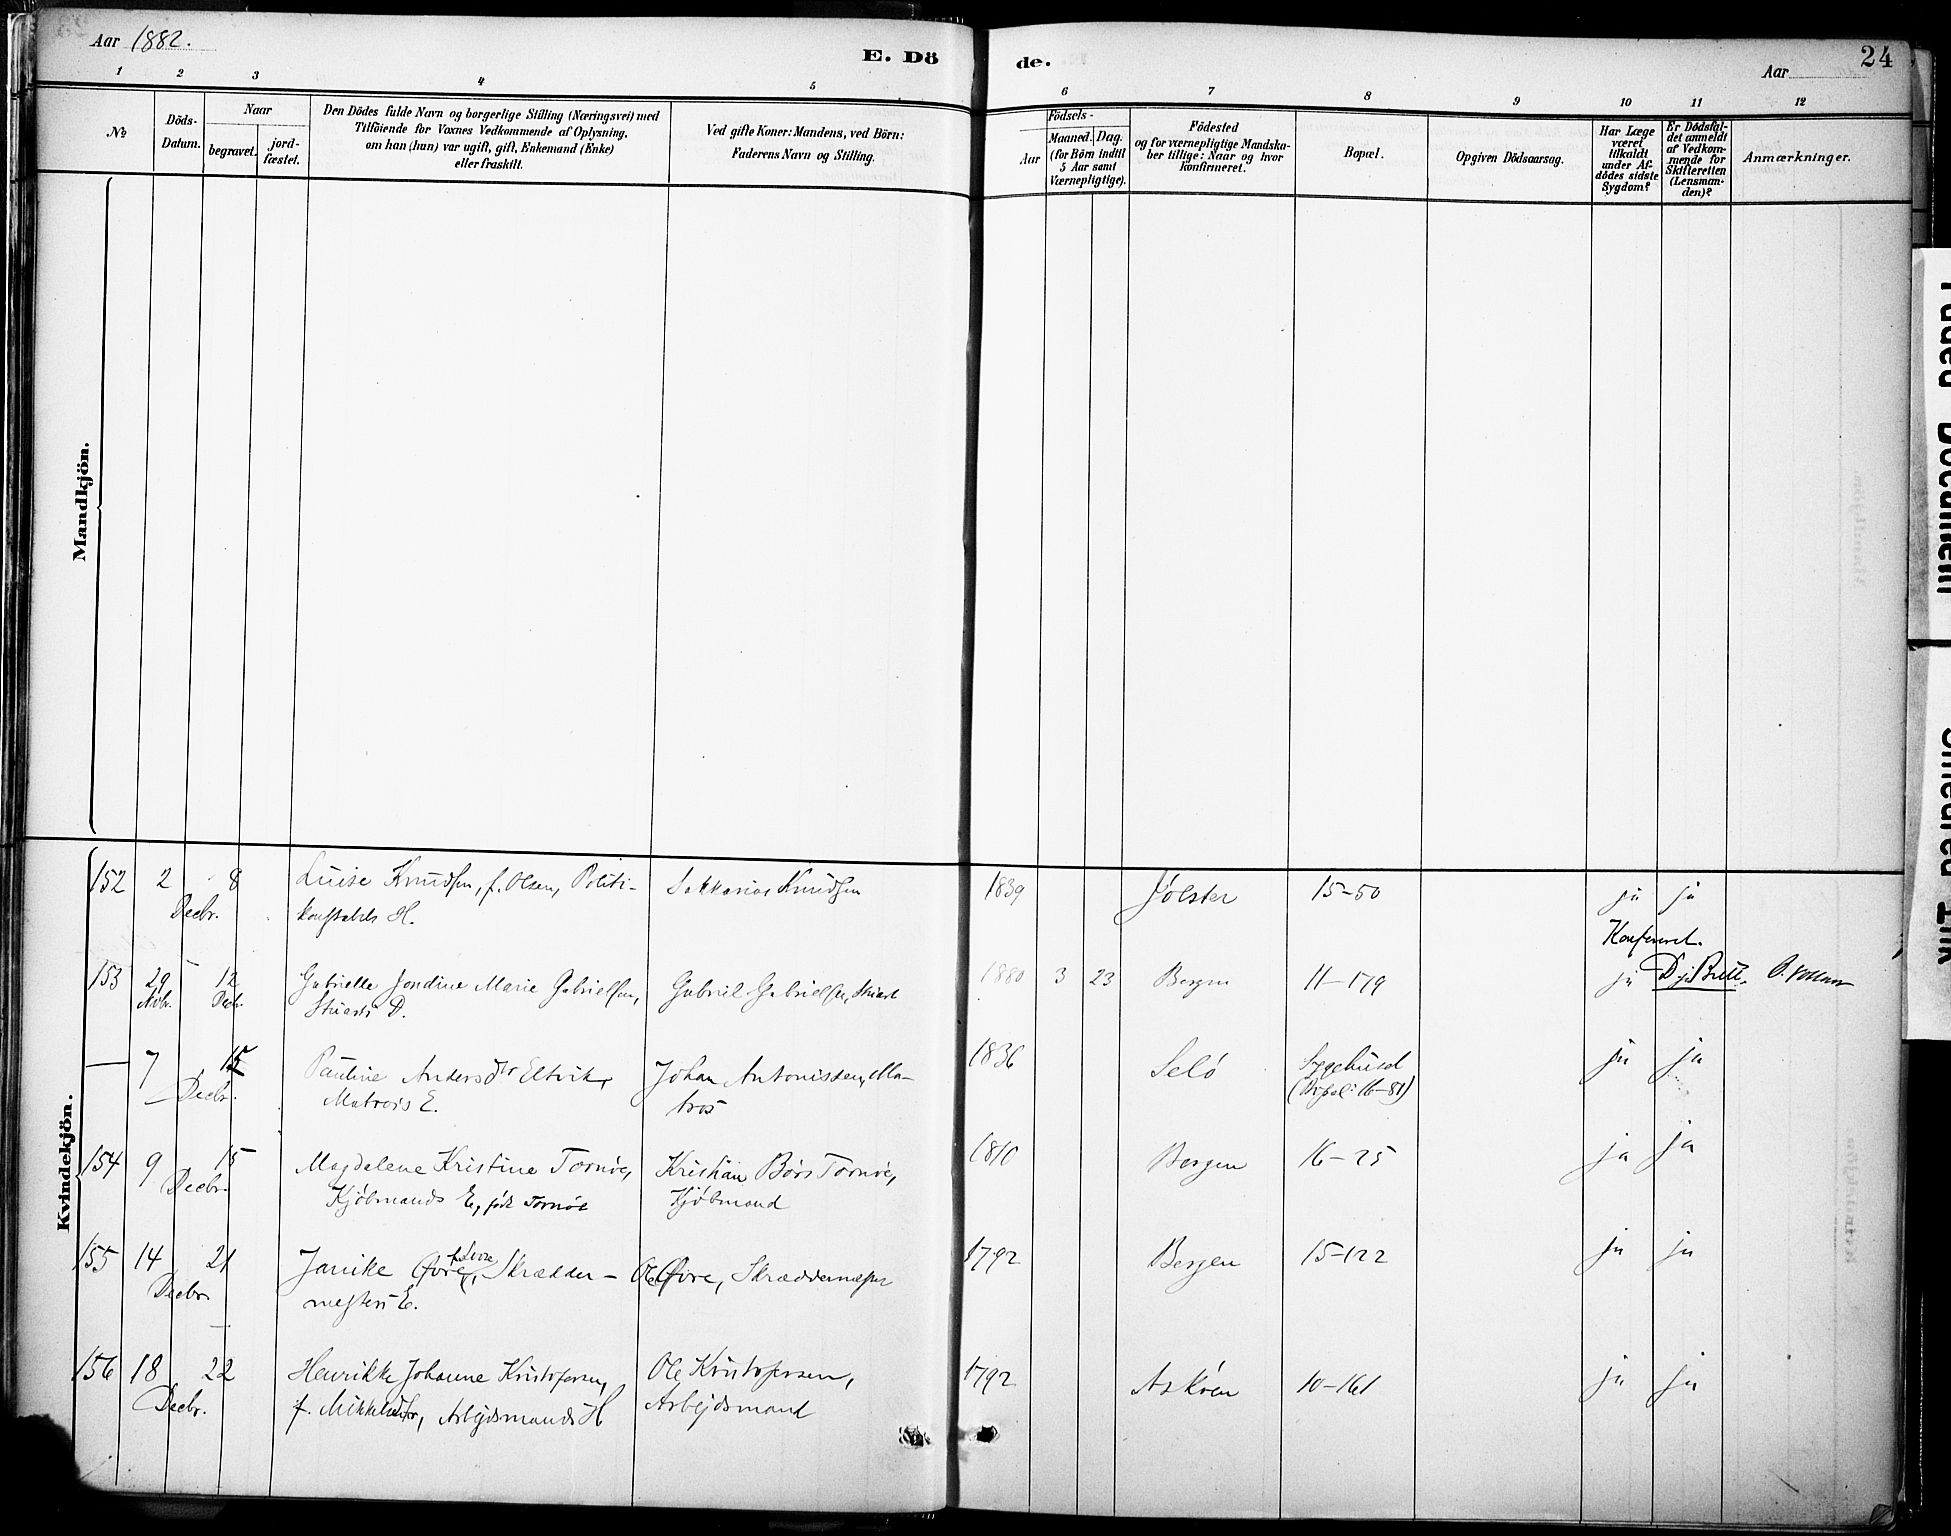 Aar 1882.
E. Dö
de.
Aar
24
1 2 3 4 5 6 7 8 9 10 11 12
№
Döds-
Datum.
Naar
begravet.
jord-
fæstet.
Den Dödes fulde Navn og borgerlige Stilling (Næringsvei) med
Tilföiende for Voxnes Vedkommende af Oplysning,
om han (hun) var ugift, gift, Enkemand (Enke)
eller fraskilt.
Ved gifte Koner: Mandens, ved Börn:
Faderens Navn og Stilling.
Födsels-
Aar
Maaned.
Dag.
(for Börn indtil
5 Aar samt
Værnepligtige).
Födested
og for værnepligtige Mandska-
ber tillige: Naar og hvor
konfirmeret.
Bopæl.
Opgiven Dödsaarsag.
Har Læge
været
tilkaldt
under Af-
dødes sidste
Sygdom?
Er Dödsfal-
det anmeldt
af Vedkom-
mende for
Skifteretten
(Lensman-
den)?
Anmærkninger.
Mandkjön.
Kvindekjön.
152 2 8 Luise Knudsen, f. Olsen, Politi- Sakkarias Knudsen 1839 Jölster 15-50 ja ja
Decbr. konstabels H.
Konfereret.
153 29 12 Gabrielle Jondine Marie Gabrielsen, Gabriel Gabrielsen, Stuert 1880 3 23 Bergen 11-179 ja
Novbr. Decbr. Stuerts D.
— 7 15 Pauline Andersdtr Eltvik, Johan Antonissen, Ma- 1836 Selö Sygehuset ja ja
Decbr. Matros E. tros (Bopæl: 16-81)
154 9 15 Magdalene Kristine Tornöe, Kristian Börs Tornöe, 1810 Bergen 16-25 ja ja
Decbr. Kjöbmands E, född Tornöe Kjöbmand
155 14 21 Janike Övre, Skrædder- Ole Övre, Skræddermester 1792 Bergen 15-122 ja ja
Decbr. mesters E.
156 18 22 Henrikke Johanne Kristofersen, Ole Kristofersen, 1792 Asköen 10-161 ja ja
Decbr. f. Mikkelsdtr, Arbejdsmands H Arbejdsmand